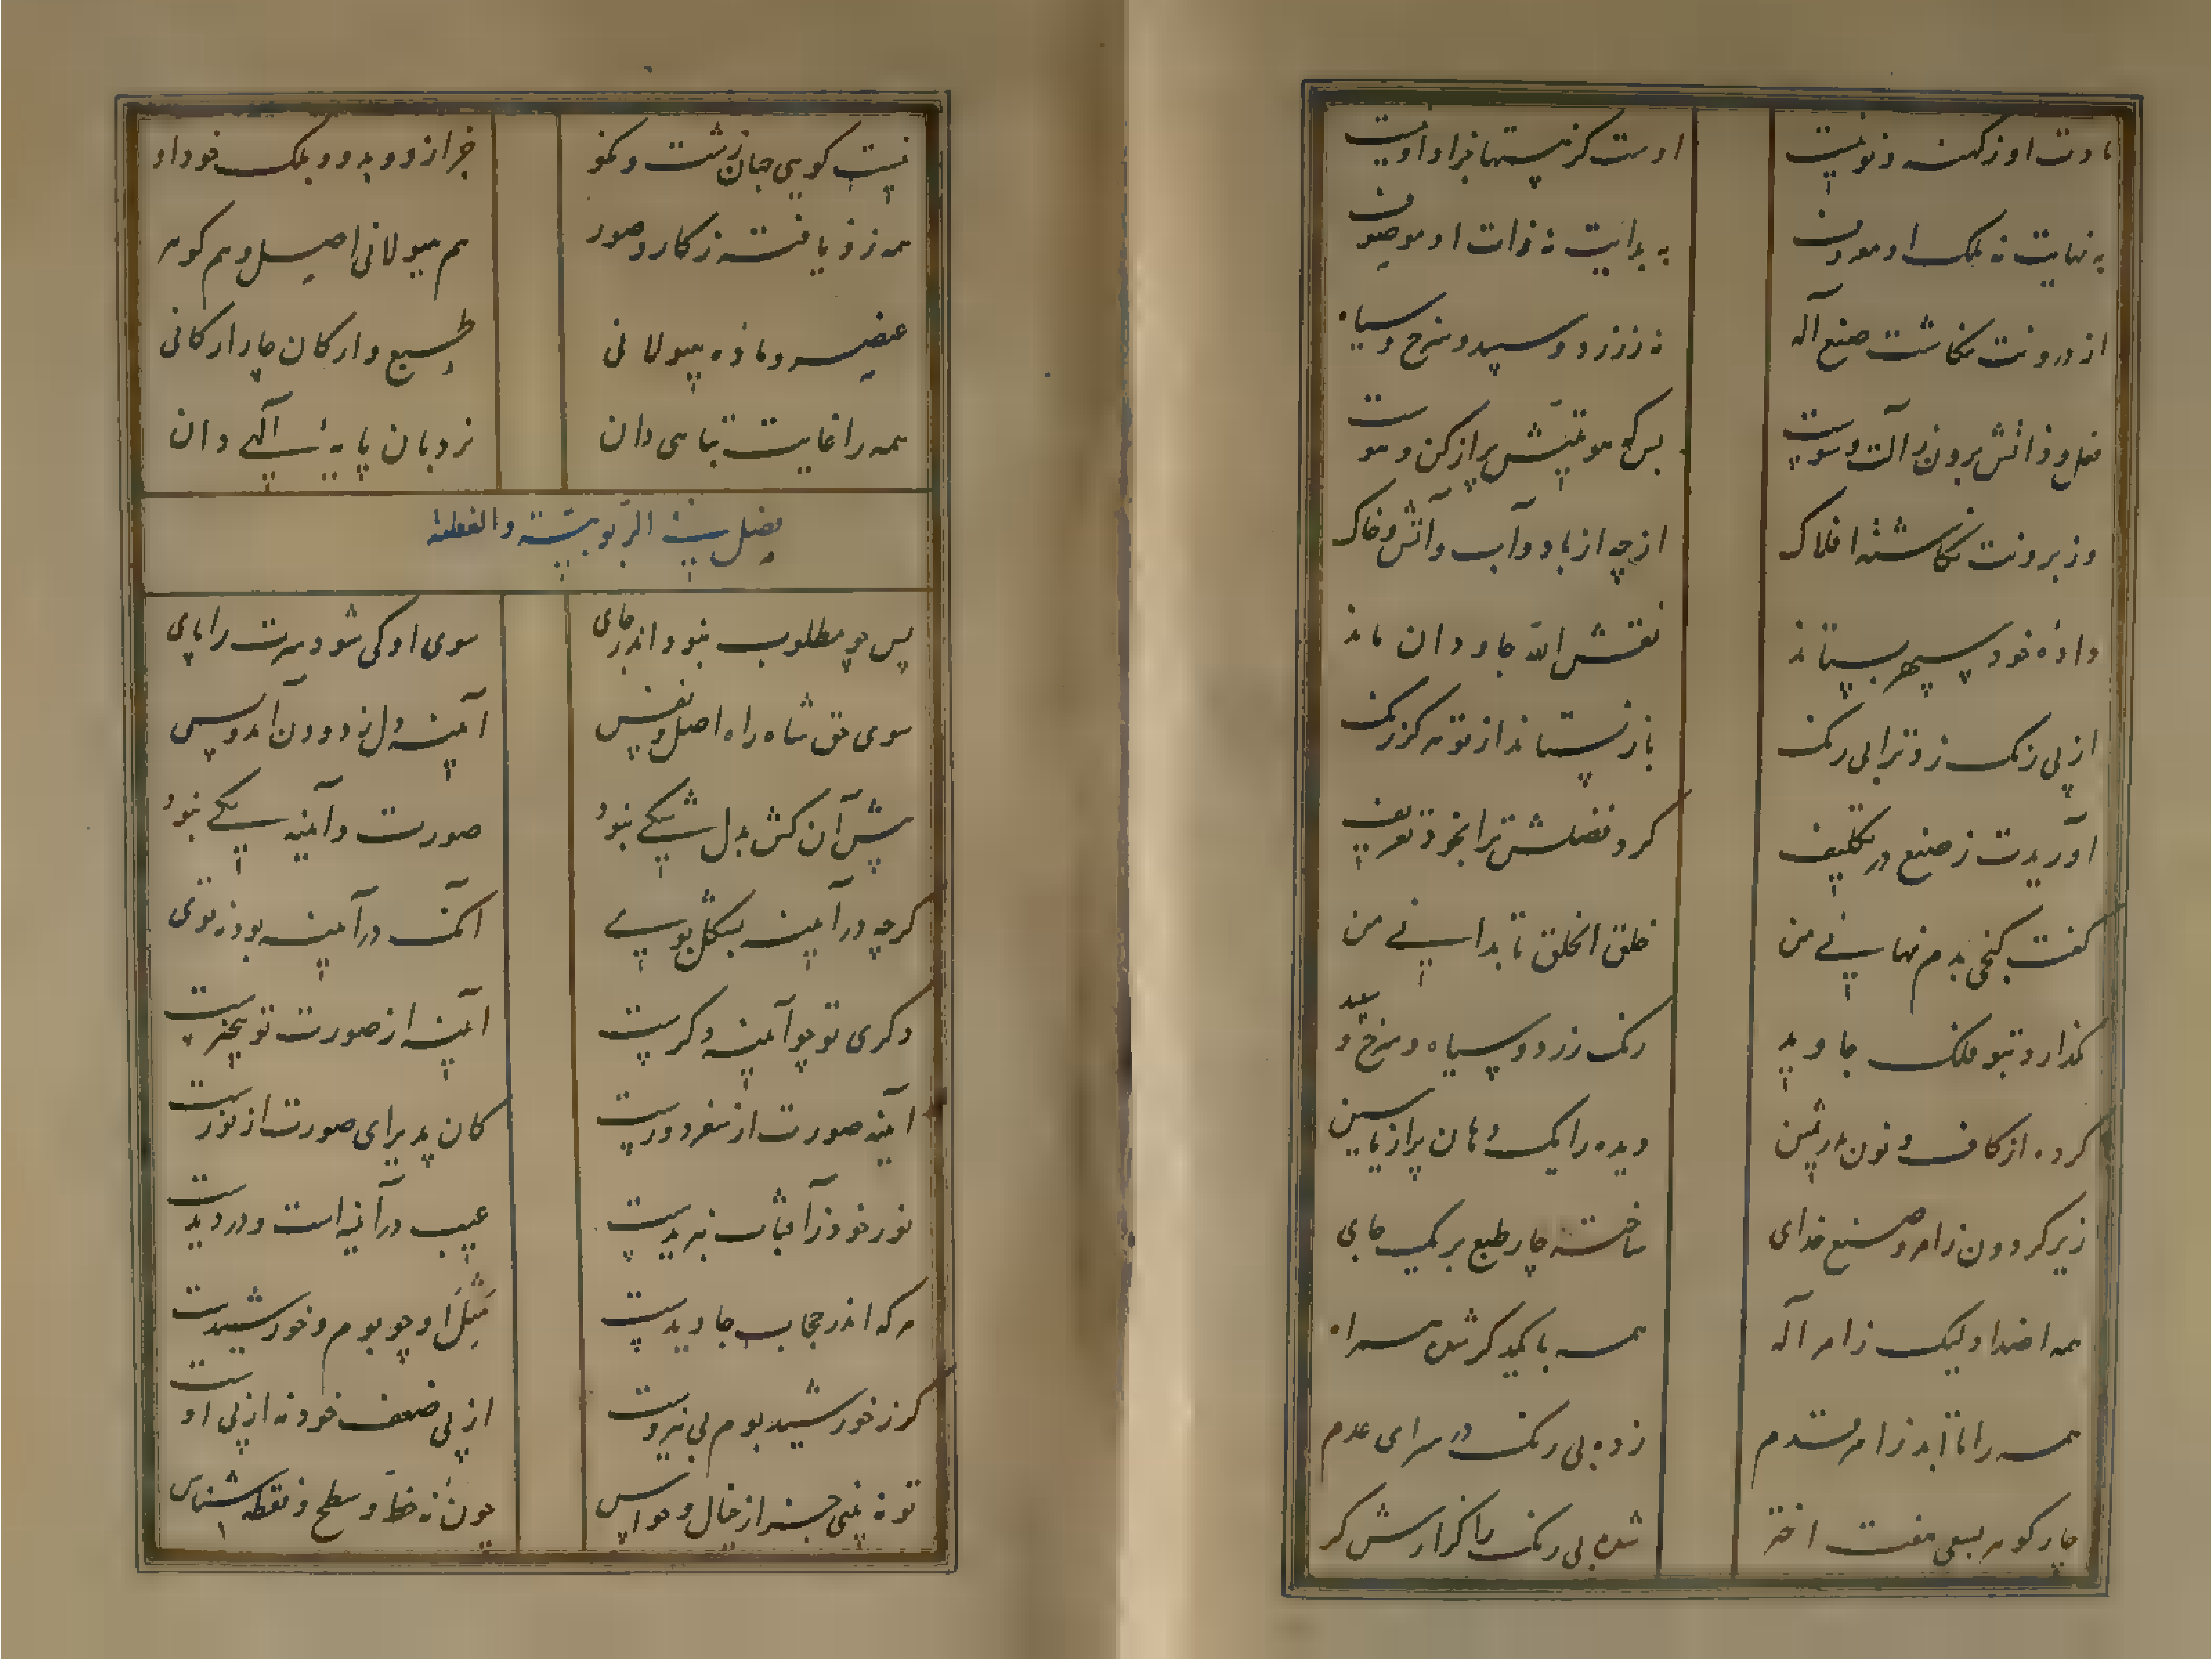 مادت او ز کهنه و نو نیست اوست کز نیستها بجز او نیست
نه نهایت نه ملک او معروف نه بدایت نه ذات او موصوف
از درونت نگاشت صنع آله نه ز زرد و سپید و سرخ و سیاه
فعل و ذاتش برون ز آلت و سوست بس که هویتش پر از کن و هوست
وز برونت نگاشته افلاک از چه از باد و آب و آتش و خاک
داده خود سپهر بستاند نقش الله جاودان ماند
از پی رنگ زد ترا بی رنگ باز نستاند از تو هرگز رنگ
آوریدت ز صنع در تکلیف کرد فضلش ترا بخود تعریف
گفت گنجی بدم نهانی من خلق الخلق تا بدانی من
نگذارد بتو فلک جاوید رنگ زرد و سیاه و سرخ و سپید
کرده از کاف و نون در ثمین دیده را یک دهان پر از یاسین
زیر گردون ز امر و صنع خدای ساخته چار طبع بر یک جای
همه اضداد لیک ز امر آله همه با یکدگر شده همراه
همه را تا ابد ز امر قدم زده بی رنگ در سرای عدم
چار گوهر بسعی هفت اختر شده بی رنگ را گزارش گر
نیست گویی جهان زشت و نکو جز ازو و بدو و بلک خود او
همه زو یافته نگار و صور هم هیولانی اصیل و هم گوهر
عنصر و ماده هیولانی طبع و ارکان چار ارکانی
همه را غایت تباهی دان نردبان پایه آلهی دان
فصل فی الربوبیة والعظمة
پس چو مطلوب نبود اندر جای سوی او کی شود سرت را پای
سوی حق شاه راه اصل و نفس آینه دل زدودن آمد و بس
پیش آن کش بدل شکی نبود صورت و آینه یکی نبود
گرچه در آینه بشکل بوی آنک در آینه بود نه توی
دگری تو چو آینه دگرست آینه از صورت تو بیخبرست
آینه صورت از سفر دورست کان پذیرای صورت از نورست
نور خود ز آفتاب نبریدست عیب در آینه است و در دیدست
هر که اندر حجاب جاویدست مثل او چو بوم و خورشیدست
گر ز خورشید بوم بی نیروست از پی ضعف خود نه از پی اوست
تو نه بینی جز از خیال و حواس چون نه خط و سطح و نقطه شناس